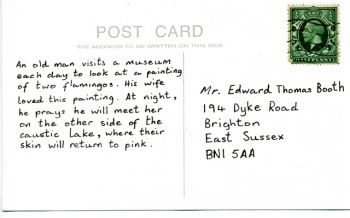 POST CARD
THE ADDRESS TO BE WRITTEN ON THIS SIDE
An old man visits a museum
each day to look at a painting
of two flamingos. His wife
loved this painting. At night,
he prays he will meet her
on the other side of the
caustic Lake, where their
skin will return to pink.
Mr. Edward Thomas Booth
194 Dyke Road
Brighton
East Sussex
BN1 5AA